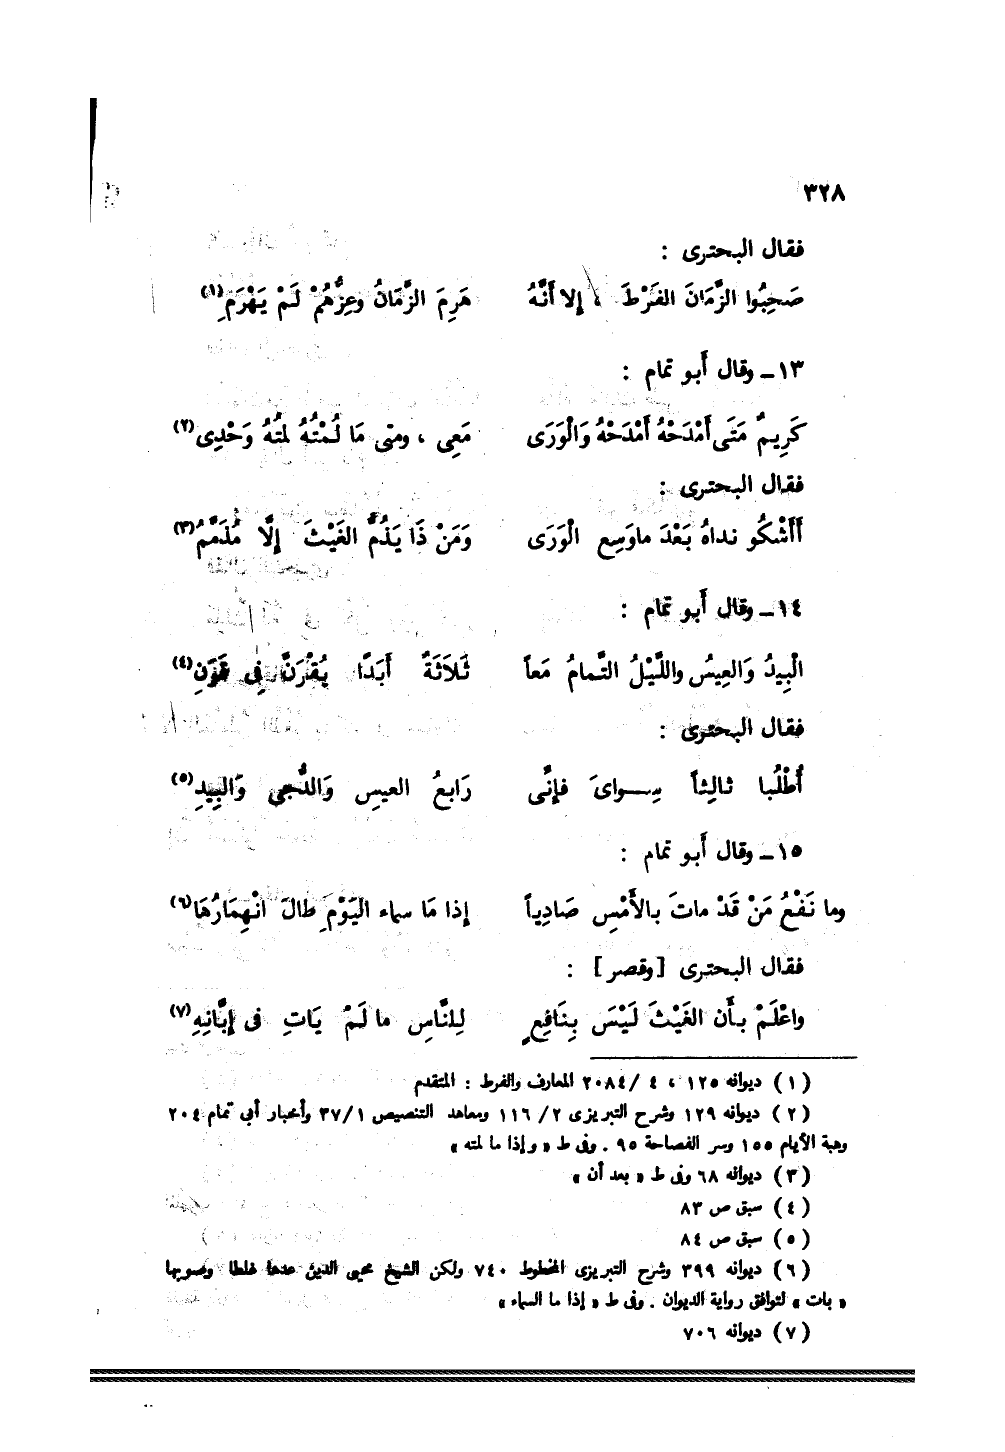 ٣٢٨
فقال البحترى :
صَحِبُوا الزَّمَانَ الفَرْطَ ، إلا أَنَّهُ هَرِمَ الزَّمَانُ وعِزُّهُمْ لَمْ يَهْرَمِ(١)
١٣ــ وقال أبو تمام :
كَرِيمٌ مَتَى أَمْدَحْهُ أَمْدَحْهُ وَالْوَرَى مَعِى ، ومتى مَا لُمْتُهُ لمتُهُ وَحْدِى(٢)
فقال البحترى :
أَأَشْكُو نداهُ بَعْدَ ماوَسِع الْوَرَى وَمَنْ ذَا يَذُمُّ الغَيْثَ إلَّا مُذَمَّمُ(٣)
١٤ــ وقال أبو تمام :
الْبِيدُ وَالعِيسُ واللَّيْلُ التَّمامُ مَعاً ثَلاَثَةٌ أَبَدًا يُقْرَنَّ فِى قَرَنِ(٤)
فقال البحترى :
أُطْلُبا ثالِثاً سِــواىَ فإنَّى رَابعُ العيسِ وَالدُّجى وَالبِيدِ(٥)
١٥ــ وقال أبو تمام :
وما نَفْعُ مَنْ قَدْ ماتَ بالأَمْسِ صَادِياً إذا مَا سماء اليَوْمِ طالَ انْهِمَارُهَا(٦)
فقال البحترى [وقصر] :
واعْلَمْ بأَن الغَيْثَ لَيْسَ بِنَافِعٍ لِلنَّاسِ ما لَمْ يَاتِ فى إبَّانِهِ(٧)
(١) ديوانه ١٢٥ ، ٤ /٢٠٨٤ المعارف والفرط : المتقدم
(٢) ديوانه ١٢٩ وشرح التبريزى ٢/ ١١٦ ومعاهد التنصيص ٣٧/١ وأخبار أبي تمام ٢٠٤
وهبة الأيام ١٥٥ وسر الفصاحة ٩٥ . وفى ط « وإذا ما لمته »
(٣) ديوانه ٦٨ وفى ط « بعد أن »
(٤) سبق ص ٨٣
(٥) سبق ص ٨٤
(٦) ديوانه ٣٩٩ وشرح التبريزى المخطوط ٧٤٠ ولكن الشيخ محيى الدين عدها غلطا وصوبها
« بات » لتوافق رواية الديوان . وفى ط « إذا ما السماء »
(٧) ديوانه ٧٠٦